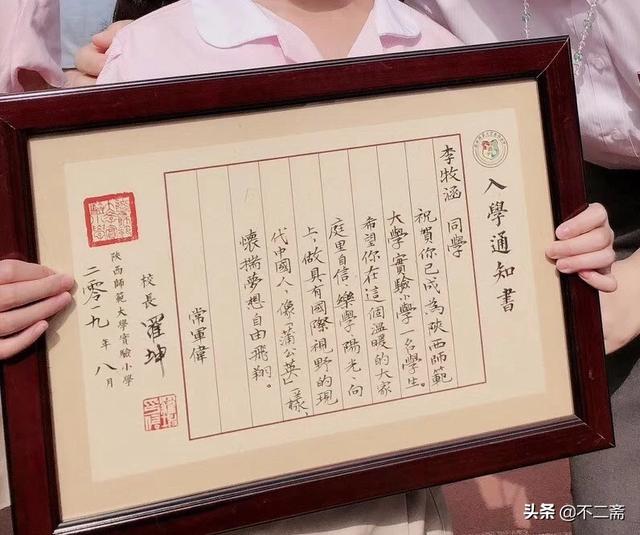 入學通知書
李牧涵 同學
祝賀你已成為陝西師範
大學實驗小學一名學生。
希望你在這個溫暖的大家
庭里自信、樂學、陽光、向
上，做具有國際視野的現
代中國人，像「蒲公英」一樣，
懷揣夢想自由飛翔。
常軍偉
校長 濯坤
陝西師範大學實驗小學
二零一九年八月
头条 @不二斋